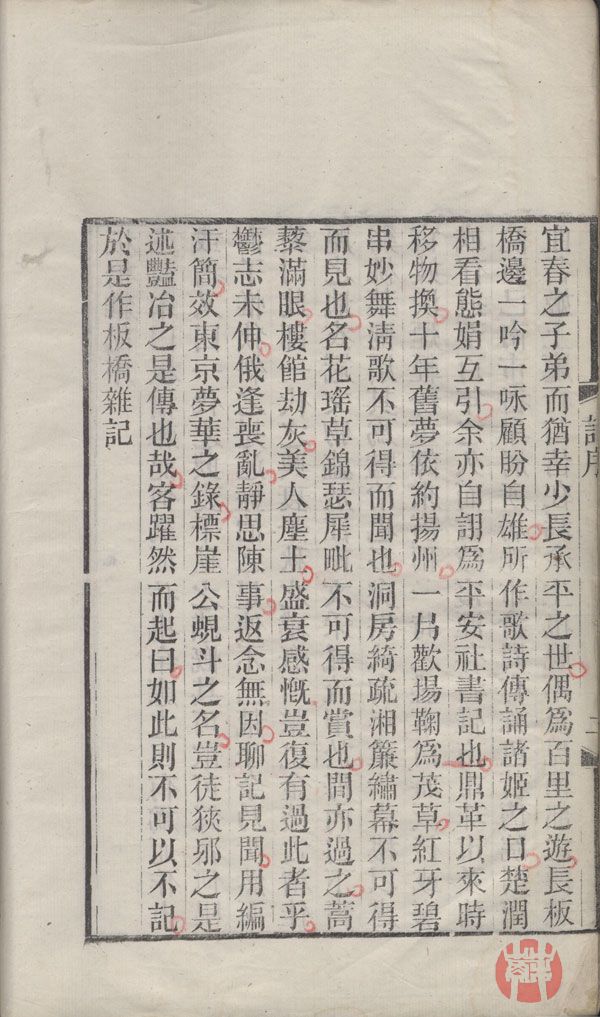 宜春之子弟而猶幸少長承平之世偶為百里之遊長板
橋邊一吟一咏顧盼自雄所作歌詩傳誦諸姬之口楚潤
相看態娟互引余亦自詡為平安社書記也鼎革以來時
移物換十年舊夢依約揚州一片歡場鞠為茂草紅牙碧
串妙舞淸歌不可得而聞也洞房綺疏湘簾繡幕不可得
而見也名花瑤草錦瑟犀毗不可得而賞也間亦過之蒿
藜滿眼樓館劫灰美人塵土盛衰感慨豈復有過此者乎
鬱志未伸俄逢喪亂靜思陳事返念無因聊記見聞用編
汗簡效東京夢華之錄標崖公蜆斗之名豈徒狹邪之是
述豔冶之是傳也哉客躍然而起曰如此則不可以不記
於是作板橋雜記